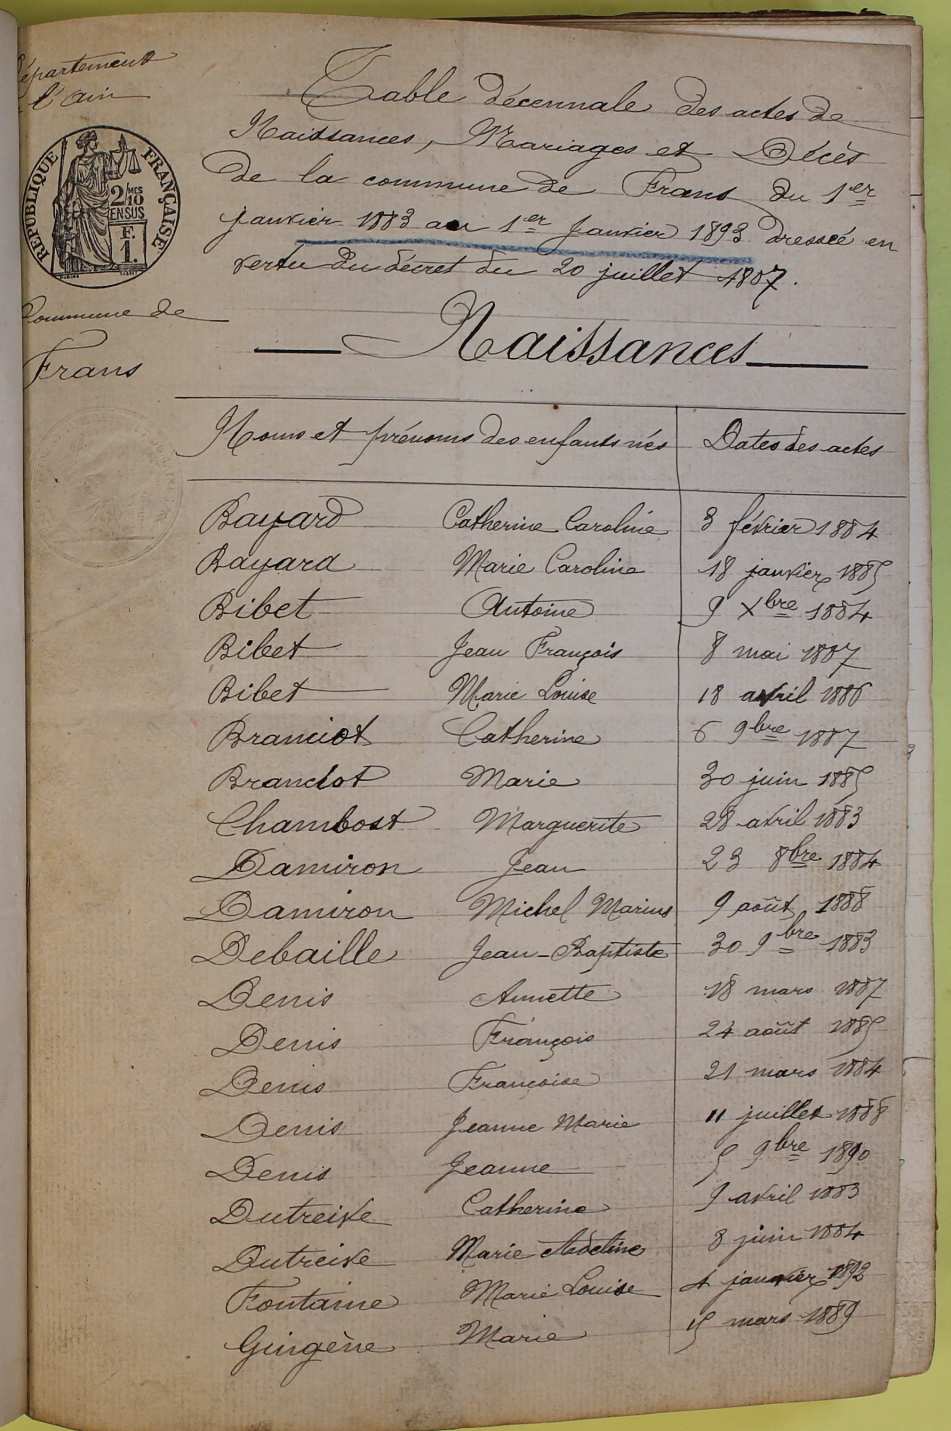 Département
l'ain
RÉPUBLIQUE FRANÇAISE
2/10 MES
EN SUS
F.
1.
Commune de
Frans
Table décennale des actes de
Naissances, Mariages et Décès
de la commune de Frans du 1er
janvier 1883 au 1er Janvier 1893 dressée en
vertu du décret du 20 juillet 1807.
Naissances
Noms et prénoms des enfants nés Dates des actes
Bayard Catherine Caroline 3 février 1884
Bayard Marie Caroline 18 janvier 1885
Bibet Antoine 9 Xbre 1884
Bibet Jean François 8 mai 1887
Bibet Marie Louise 18 avril 1886
Branciot Catherine 6 9bre 1887
Branciot Marie 30 juin 1885
Chambost Marguerite 28 avril 1883
Damiron Jean 23 8bre 1884
Damiron Michel Marius 9 août 1888
Debaille Jean-Baptiste 30 9bre 1883
Denis Annette 18 mars 1887
Denis François 24 août 1885
Denis Françoise 21 mars 1884
Denis Jeanne Marie 11 juillet 1888
Denis Jeanne 5 9bre 1890
Dutreive Catherine 9 avril 1883
Dutreive Marie 8 juin 1884
Fontaine Marie Louise 4 janvier 1892
Guigène Marie 15 mars 1889